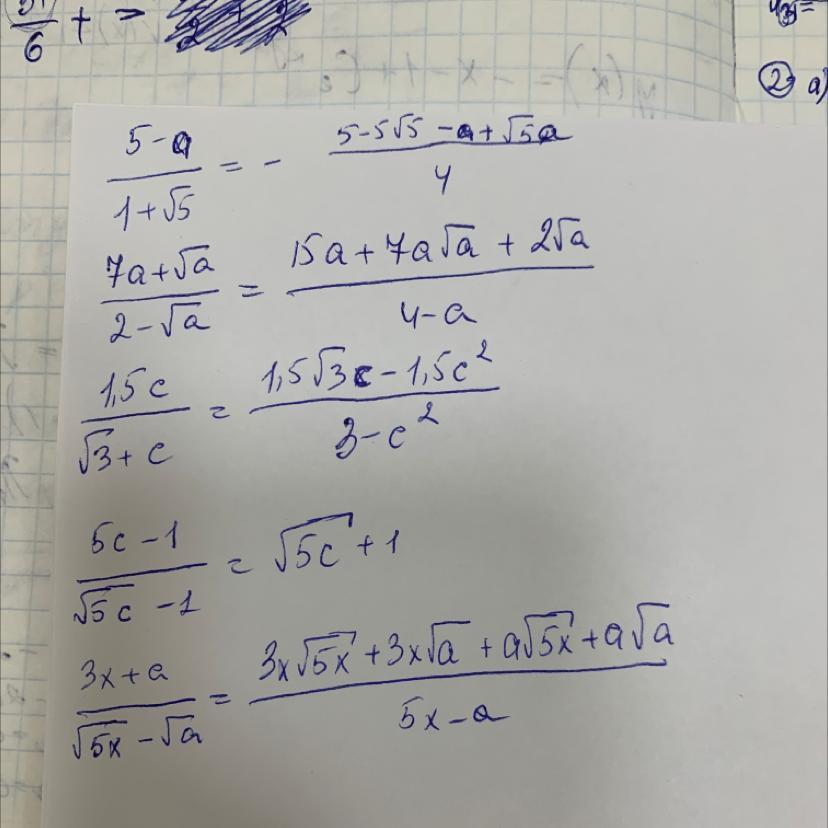 6 + =
② a)
(5-a)/(1+√5) = - (5-5√5-a+√5a)/4
(7a+√a)/(2-√a) = (15a+7a√a+2√a)/(4-a)
(1,5c)/(√3+c) = (1,5√3c-1,5c²)/(3-c²)
(5c-1)/(√5c-1) = √5c+1
(3x+a)/(√5x-√a) = (3x√5x+3x√a+a√5x+a√a)/(5x-a)